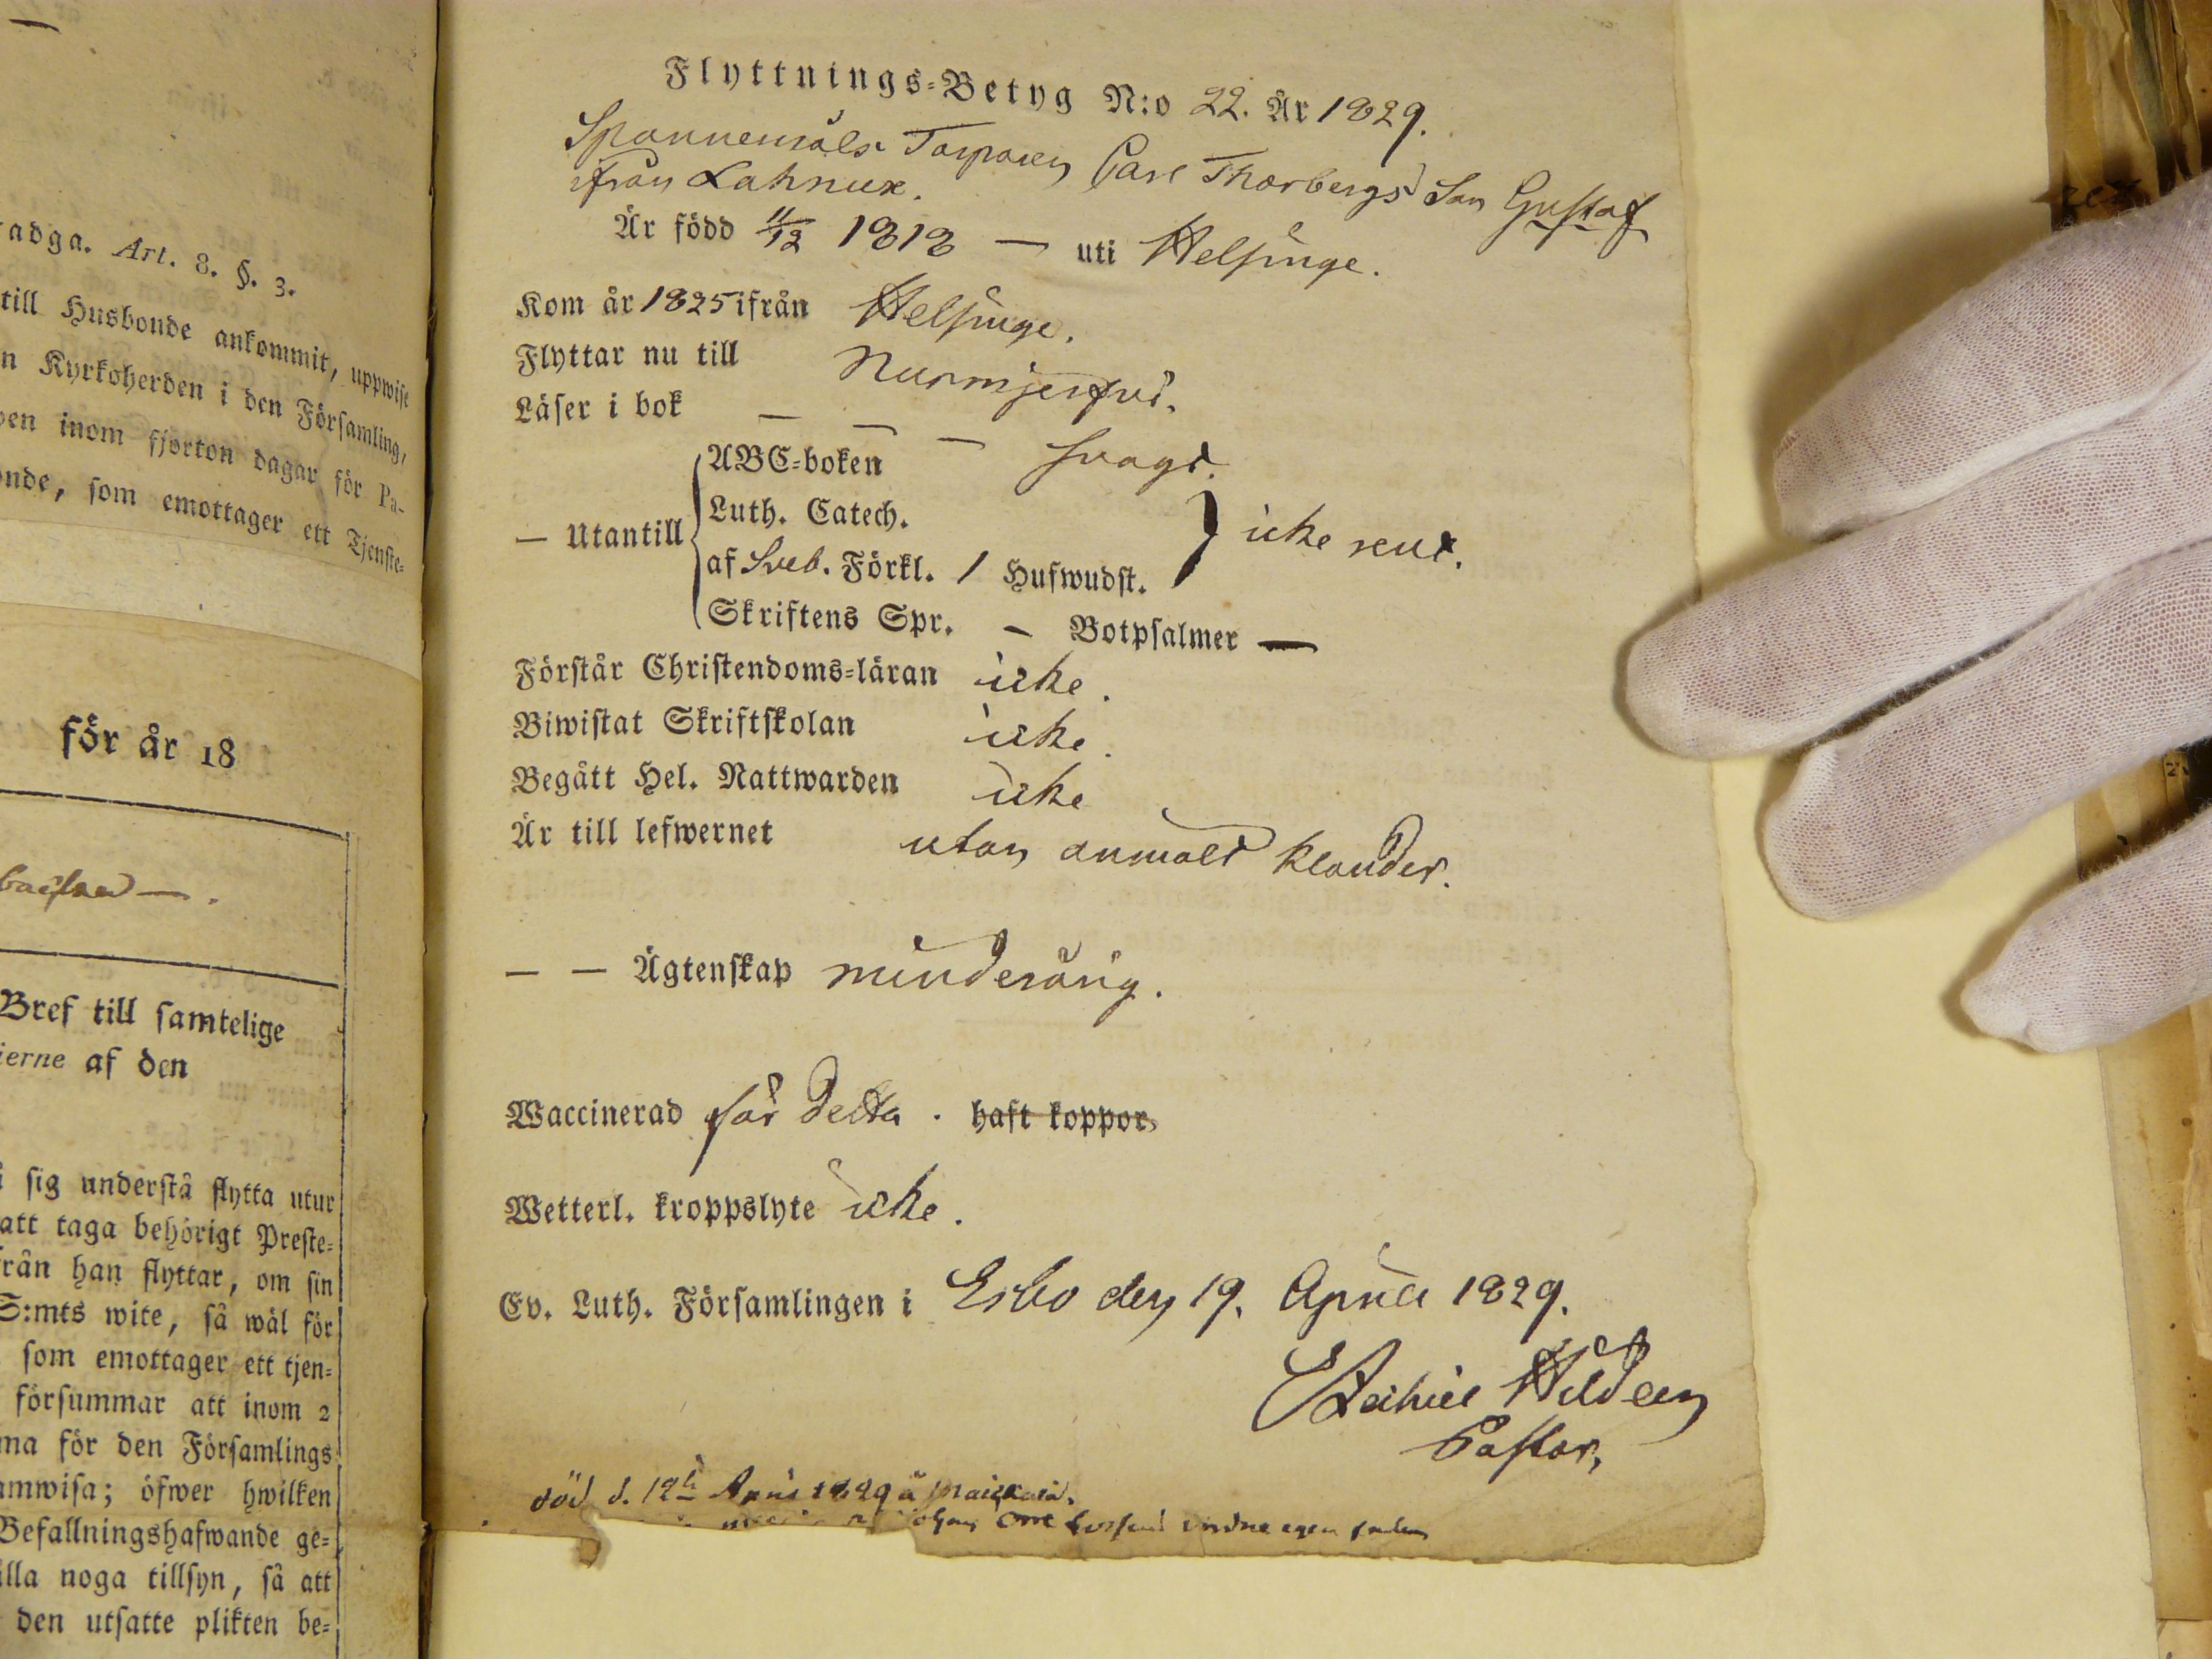 adga. Art. 8. §. 3.
till Husbonde ankommit, uppwise
n Kyrkoherden i den Församling,
pen inom fjorton dagar för Pa-
onde, som emottager ett Tjenste-
för år 18
Bref till samtelige
ierne af den
sig understå flytta utur
att taga behörigt Preste-
från han flyttar, om sin
S:mts wite, så wäl för
som emottager ett tjen-
försummar att inom 2
ma för den Församlings
amwisa; öfwer hwilken
Befallningshafwande ge-
illa noga tillsyn, så att
den utsatte plikten be-
Flyttnings-Betyg N:o 22. År 1829.
Spannemåls Torparen Carl Thorbergs Son Gustaf
ifrån Lahnux.
Är född 11/12 1818 — uti Helsinge.
Kom år 1825 ifrån Helsinge.
Flyttar nu till Nurmijerfvi.
Läser i bok — — — svagt.
— Utantill
ABC-boken
Luth. Catech.
af Sveb. Förkl. 1 Hufwudst.
icke rent.
Skriftens Spr. – Botpsalmer —
Förstår Christendoms-läran icke.
Biwistat Skriftskolan icke.
Begått Hel. Nattwarden icke
Är till lefwernet utan anmält klander.
— — Ägtenskap minderårig.
Waccinerad för detta. haft koppor,
Wetterl. kroppslyte icke.
Ev. Luth. Församlingen i Esbo den 19. April 1829.
Hildeen
Pastor,
död d. 12 1829 å